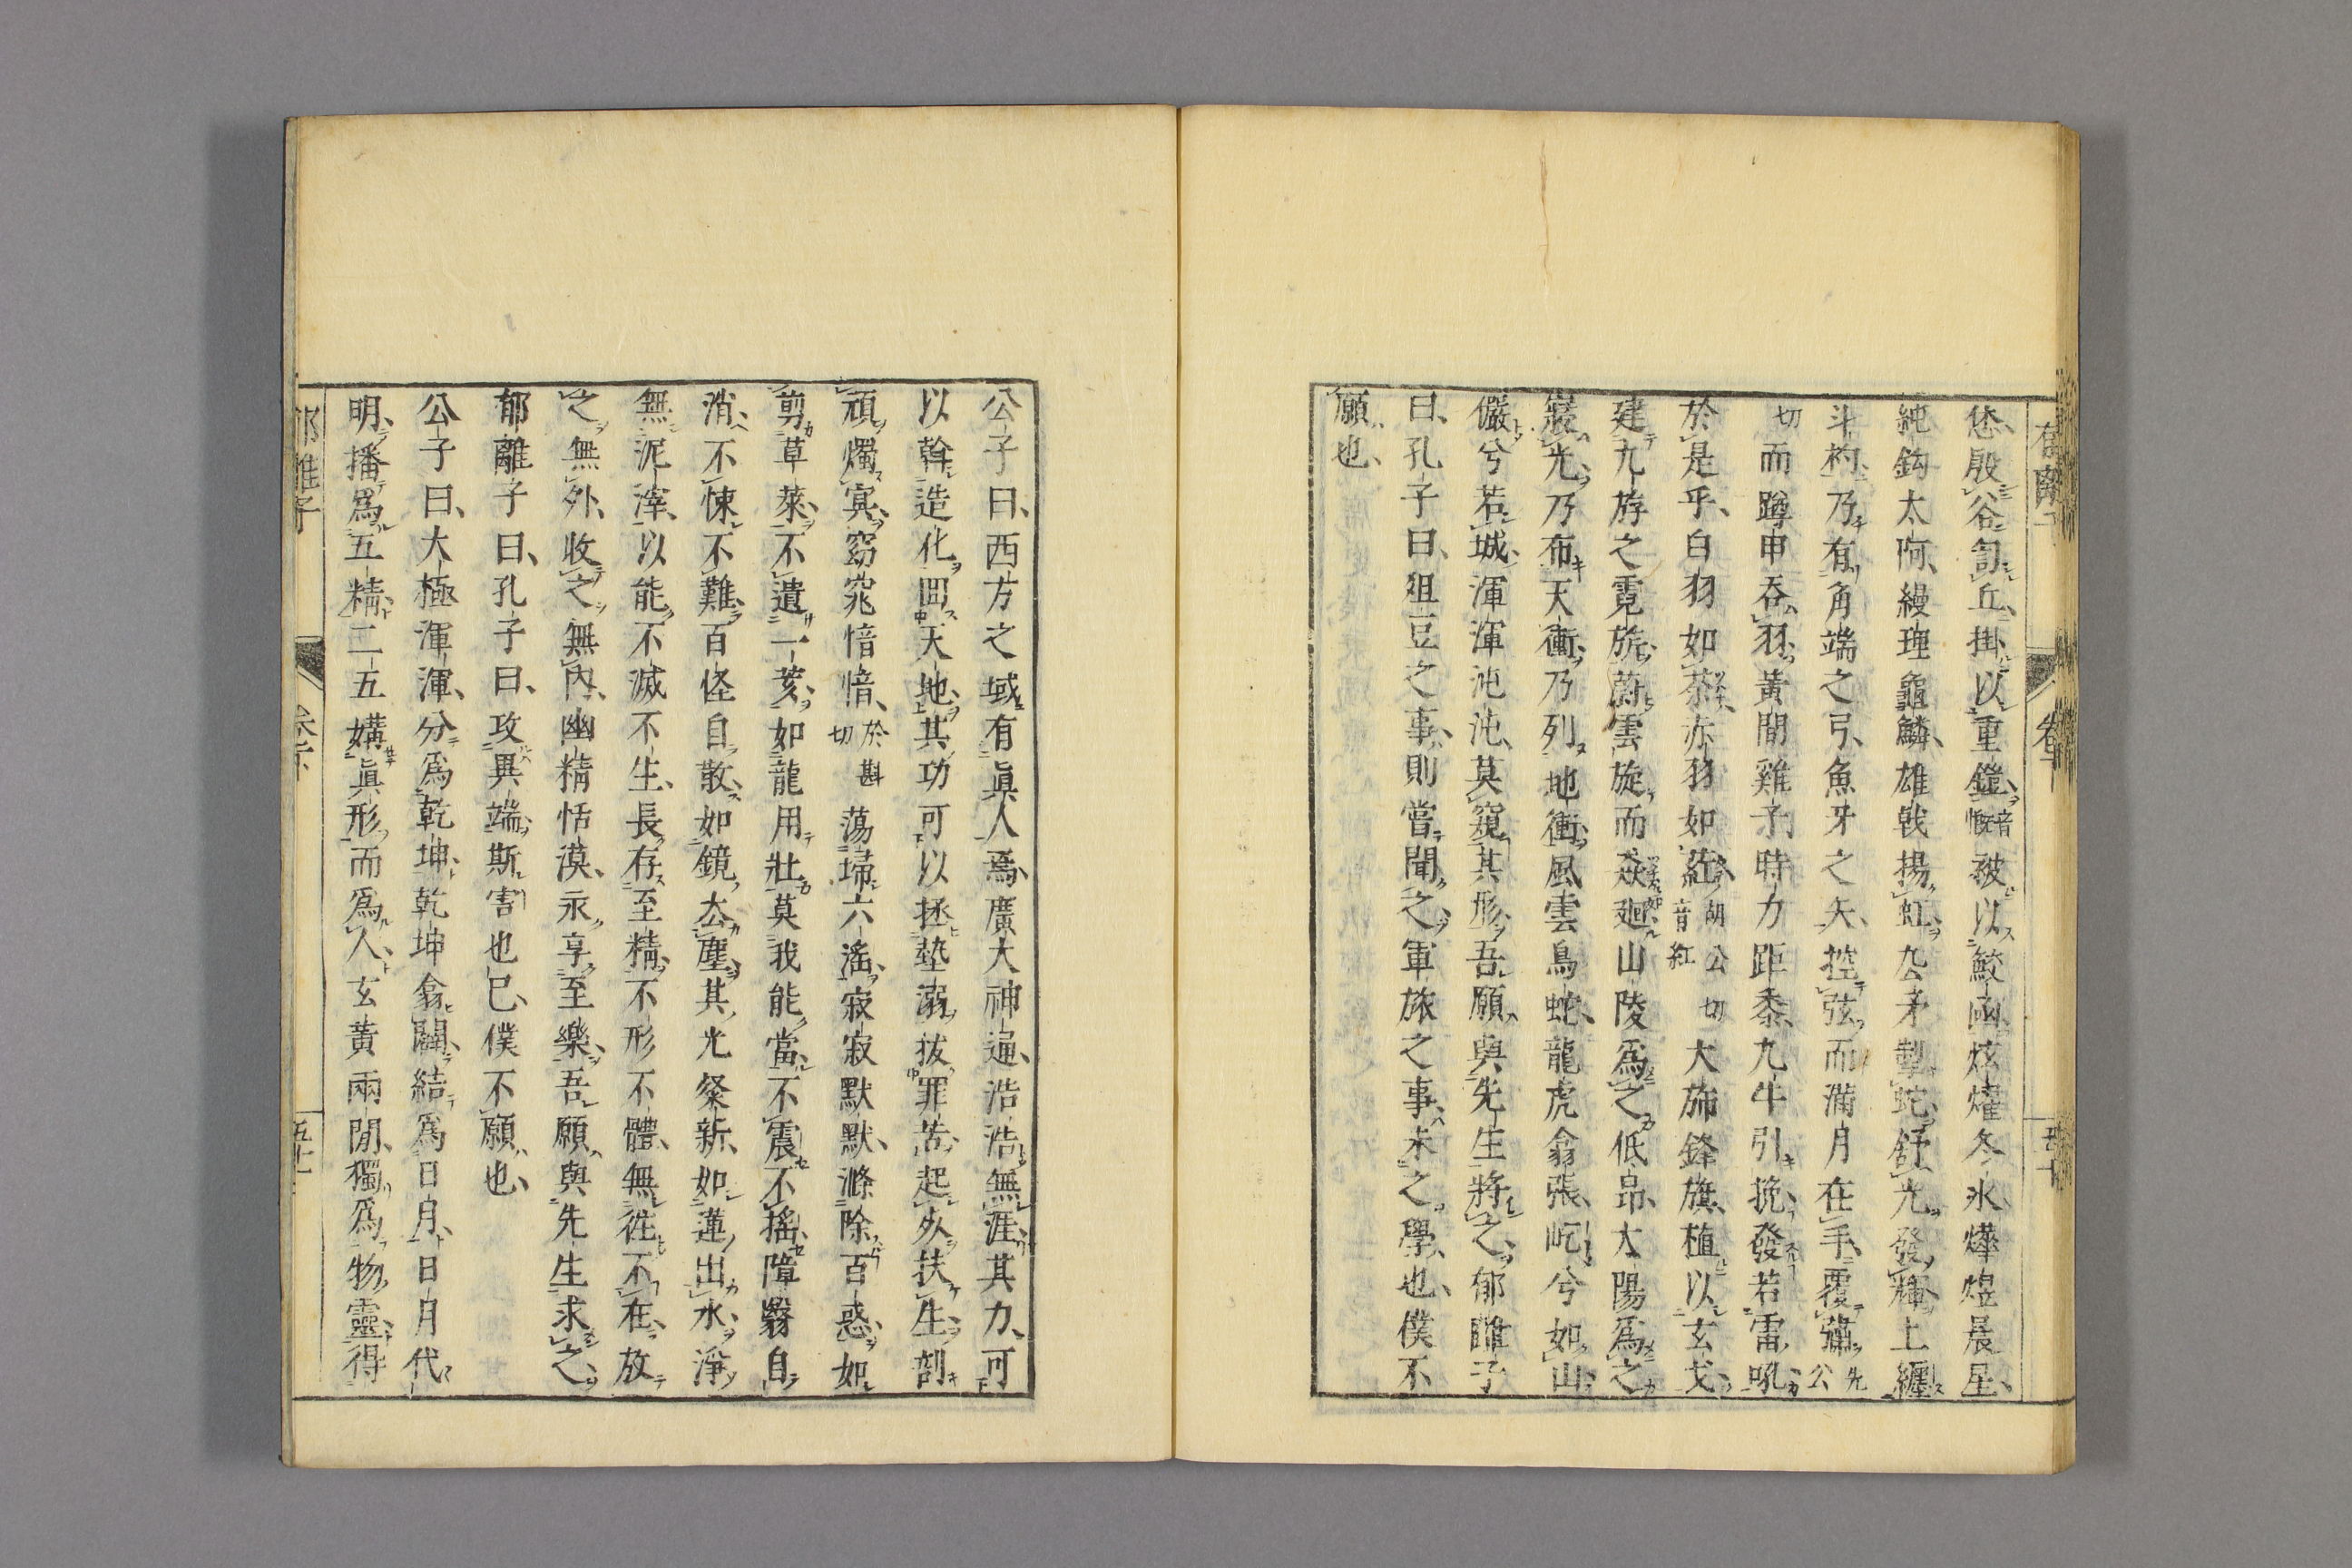 恷殷谷訇丘掛以重鎧音慨被以鮫凾炫燿冬氷燁煜晨星
純鈎太阿縵理龜鱗雄戟揚虹厹矛掣蛇舒光發輝上纏
斗杓乃有角端之弓魚牙之矢控弦而滿月在手覆彇先公
切而蹲甲吞羽黃間雞子時力距黍九牛引挽發若雷吼
於是乎白羽如荼赤羽如葒胡公切音紅大斾鋒旗植以玄戈
建九斿之霓旄蔚雲旋而焱廻山陵爲之低昂大陽爲之
嚴光乃布天衝乃列地衝風雲鳥蛇龍虎翕張屹兮如山
儼兮若城渾渾沌沌莫窺其形吾願與先生將之郁離子
曰孔子曰俎豆之事則嘗聞之軍旅之事未之學也僕不
願也
公子曰西方之域有眞人焉廣大神通浩浩無涯其力可
以斡造化回天地其功可以拯墊溺拔罪苦起仆扶生剖
頑燭冥窈窕愔愔於斟切蕩埽六滛寂寂默默滌除百惑如
剪草萊不遺一荄如龍用壯莫我能當不震不搖障翳自
消不悚不難百怪自散如鏡厺塵其光粲新如蓮出水淨
無泥滓以能不滅不生長存至精不形不體無徃不在放
之無外收之無內幽精恬漠永享至樂吾願與先生求之
郁離子曰孔子曰攻異端斯害也已僕不願也
公子曰大極渾渾分爲乾坤乾坤翕闢結爲日月日月代
明播爲五精二五媾眞形而爲人玄黃兩閒獨爲物靈得
郁離子